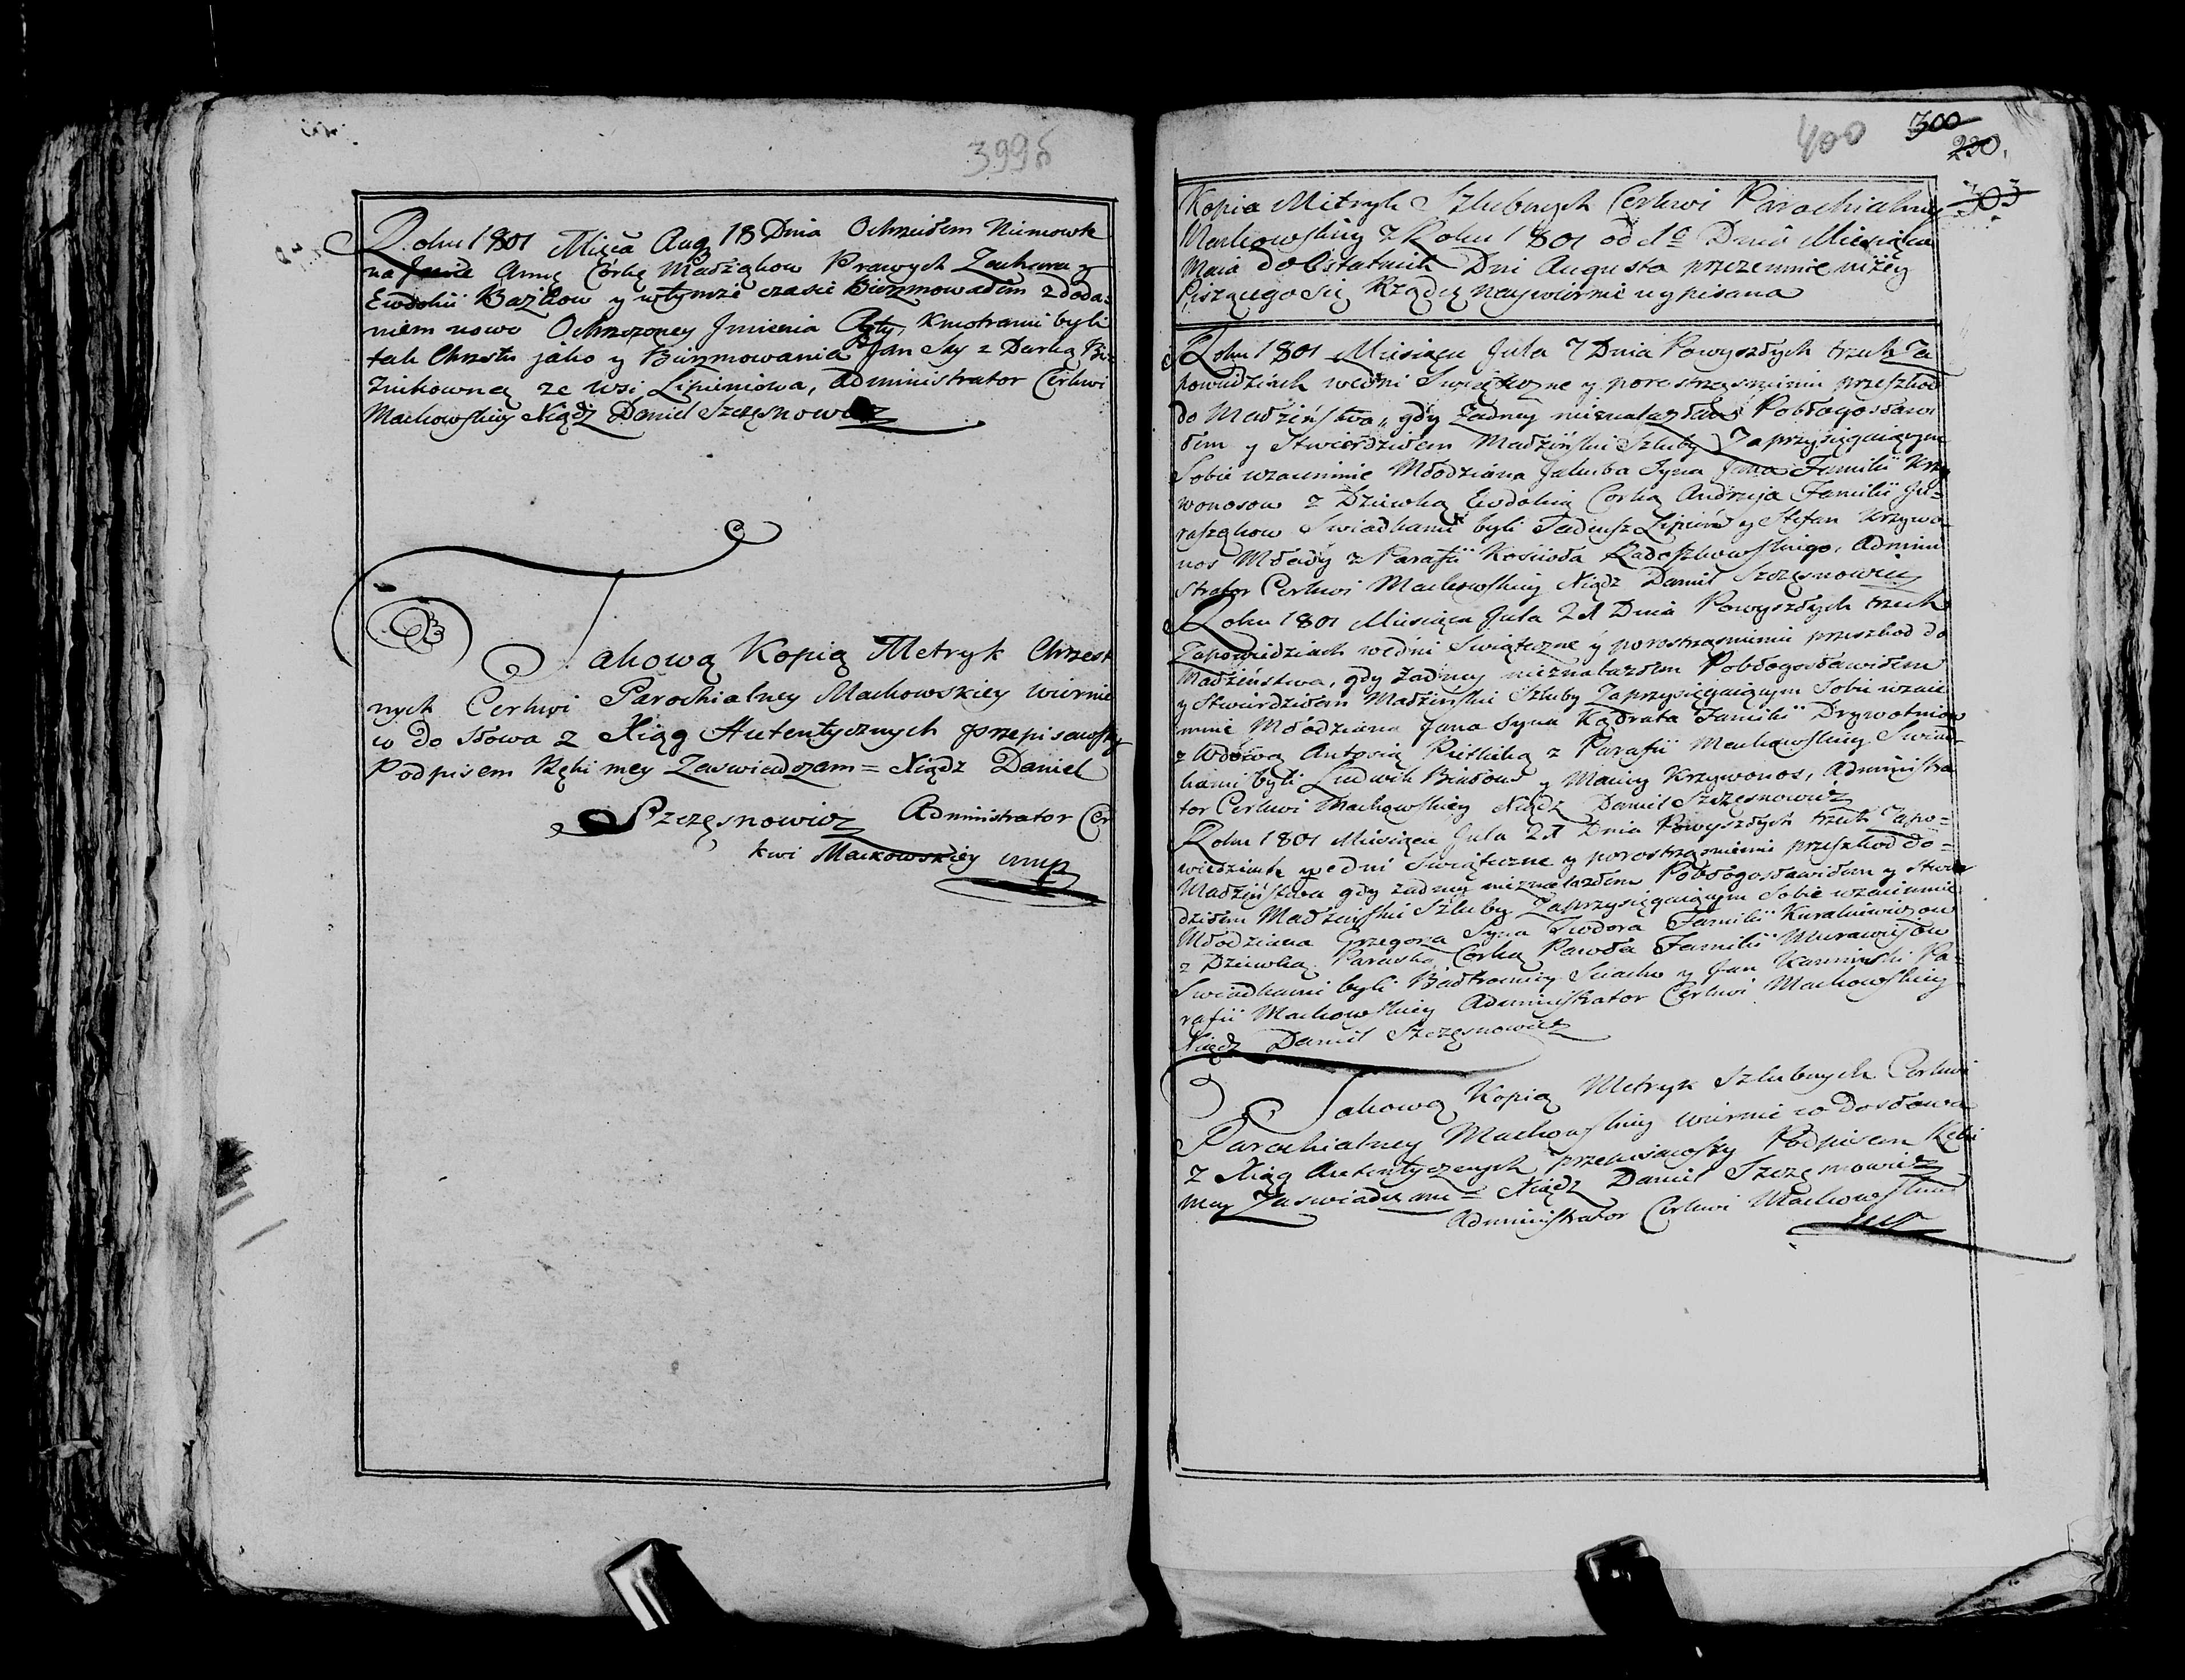 399б
Roku 1801 Mięca Aug 18 Dnia Ochrzciłem Niemowle
na Jmie Annę Córkę Małżąkow Prawych Zachara y
Ewdokii Bażkow y wtymże czasie Bierzmowałem z doda-
niem nowo Ochrzczoney Jmienia Kmotrami byli
tak Chrztu jako y Bierzmowania Jan Sky z Darką
ze wsi Lipieniowa, Administrator Cerkwi
Maćkowskiey Xiądz Daniel Szczęsnowicz
Takową Kopią Metryk Chrzest
nych Cerkwi Parochialney Mackowskiey wiernie
w do słowa z Xiąg Autentycznych przepisawszy
Podpisem Ręki mey Zaswiadczam = Xiądz Daniel
Szczęsnowicz Administrator Cer
kwi Mackowskiey mp
400 300
230.
303
Kopia Mitryk Szlubnych Cerkwi Parochialney
Maćkowskiey z Roku 1801 od 1o Dnia Miesiąca
Maia do Ostatnich Dni Augusta przezemnie niżey
Piszącego się Rządcę naywiernie wypisana
Roku 1801 Miesiąca Jula 7 Dnia Powyszłych trzech Za
powiedziach wedni Swiąteczne y porostrząsnieniu przeszkod
do Małżeństwa, gdy żadney nieznalazłem Pobłogosławi
łem y Stwierdziłem Małżeński Szluby Zaprzysięgaiącym
Sobie wzaiemnie Młodziana Jakuba Syna Jana Familii Krzy
wonosow z Dziewką Ewdokią Corką Andrzeja Familii Ju-
rasząkow Swiadkami byli Tadeusz Lipień y Stefan Krzywo
nos Młody z Parafii Kościoła Radoszkowskiego, Admini
strator Cerkwi Maćkowskiey Xiądz Daniel Szczęsnowicz
Roku 1801 Miesiąca Jula 21 Dnia Powyszłych trzech
Zapowiedziach wedni Swiąteczne y porostrząsnieniu przeszkod do
Małżeństwa, gdy żadney nieznalazłem Pobłogosławiłem
y Stwierdziłem Małżeński Szluby Zaprzysięgaiącym Sobie wzaie
mnie Młodziana Jana Syna Kądrata Familii Drywotniow
z Wdową Antosią Pietlicką z Parafii Maćkowskiey Swiad-
kami byli Ludwik Białous y Maciey Krzywonos, Administra
tor Cerkwi Maćkowskiey Xiądz Daniel Szczęsnowicz
Roku 1801 Miesiąca Jula 21 Dnia Powyszłych trzech Zapo-
wiedziach wedni Swiąteczne y porostrząsnieniu przeszkod do-
Małżeństwa gdy żadney nieznalazłem Pobłogosławiłem y Stwier
dziłem Małżeński Szluby Zaprzysięgaiącym Sobie wzaiemnie
Młodziana Grzegorza Syna Teodora Familii Kurakiewiczow
z Dziewką Paraską Corką Pawła Familii Murawiejow
Swiadkami byli Bałtromiey Sciacko y Jan Kamiński Pa-
rafii Maćkowskiey Administrator Cerkwi Maćkowskiey
Xiądz Daniel Szczęsnowicz
Takową Kopią Metryk Szlubnych Cerkwi
Parochialney Maćkowskiey wiernie w do słowa
z Xiąg Autentycznych przepisawszy Podpisem Ręki
mey Zaswiadczam = Xiądz Daniel Szczęsnowicz
Administrator Cerkwi Maćkowskiey
mp